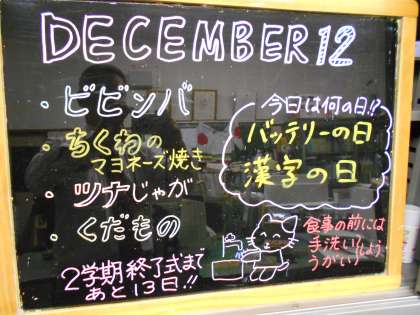 DECEMBER 12
・ビビンバ
・ちくわの
マヨネーズ焼き
・ツナじゃが
・くだもの
2学期終了式まで
あと13日!!
今日は何の日!!
バッテリーの日
漢字の日
食事の前には
手洗い
うがい
しよう